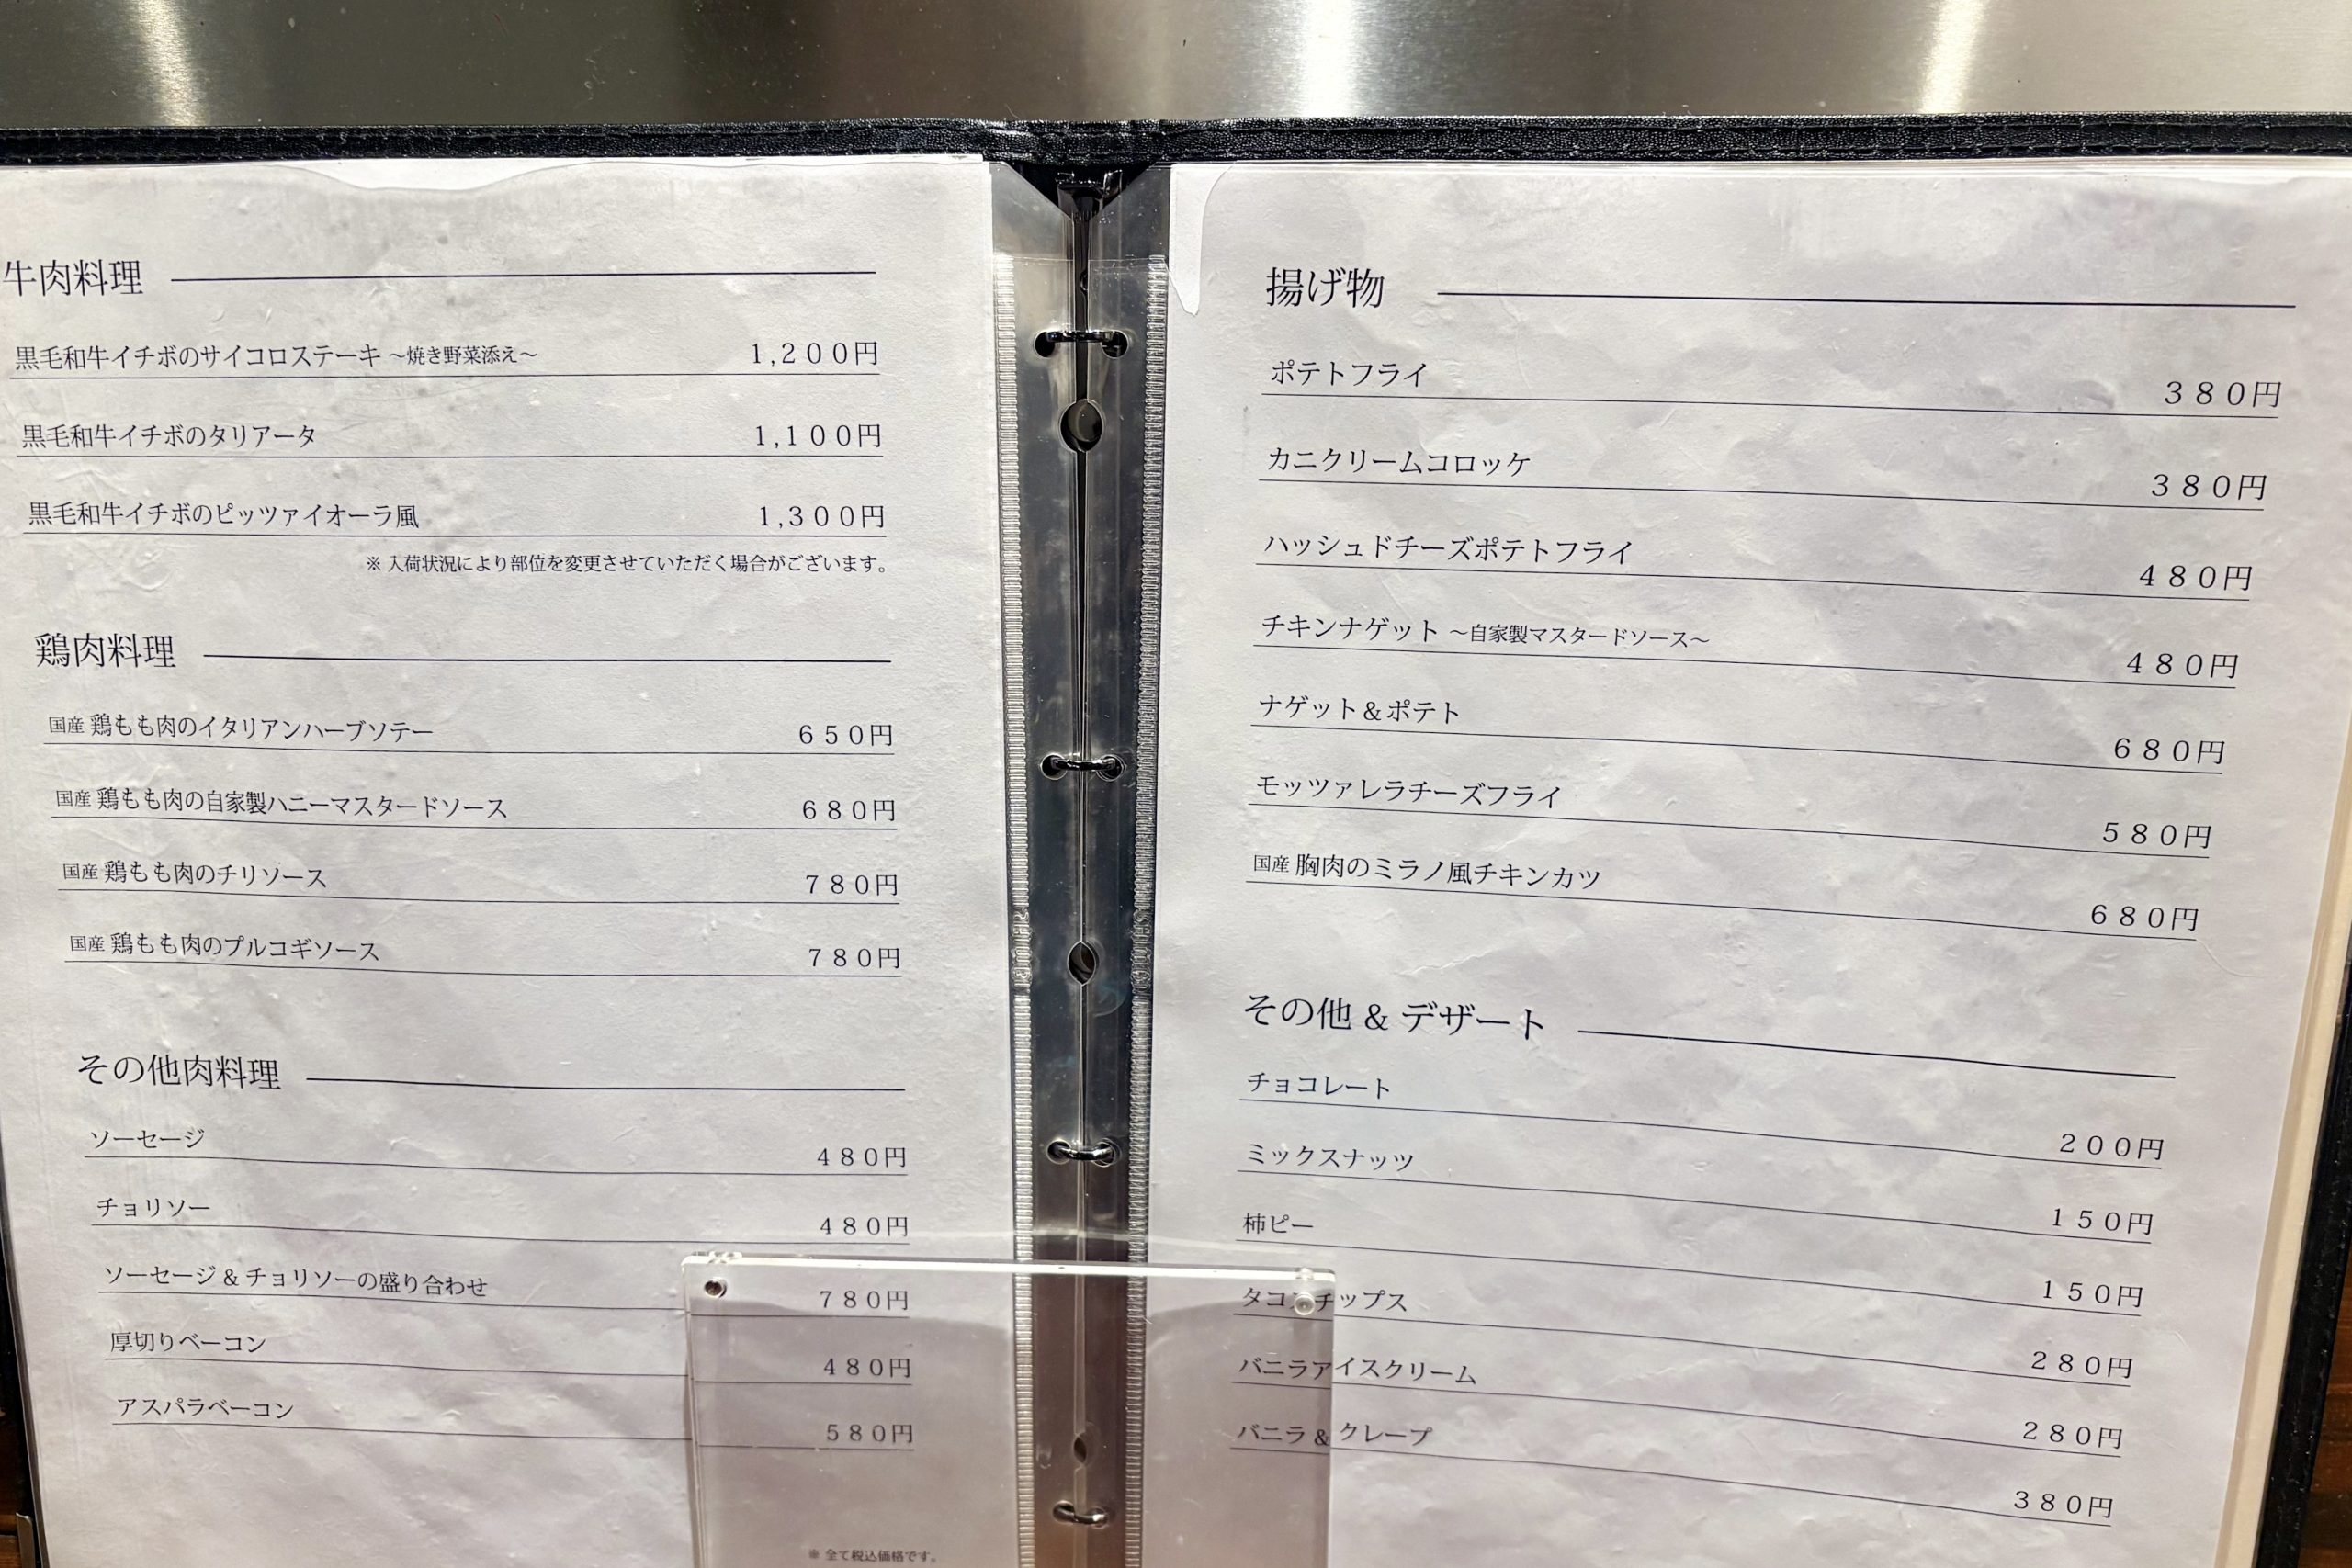 牛肉料理
黒毛和牛イチボのサイコロステーキ ～焼き野菜添え～ 1,200円
黒毛和牛イチボのタリアータ 1,100円
黒毛和牛イチボのピッツァイオーラ風 1,300円
※ 入荷状況により部位を変更させていただく場合がございます。
鶏肉料理
国産 鶏もも肉のイタリアンハーブソテー 650円
国産 鶏もも肉の自家製ハニーマスタードソース 680円
国産 鶏もも肉のチリソース 780円
国産 鶏もも肉のプルコギソース 780円
その他肉料理
ソーセージ 480円
チョリソー 480円
ソーセージ & チョリソーの盛り合わせ 780円
厚切りベーコン 480円
アスパラベーコン 580円
※ 全て税込価格です。
揚げ物
ポテトフライ 380円
カニクリームコロッケ 380円
ハッシュドチーズポテトフライ 480円
チキンナゲット ～自家製マスタードソース～ 480円
ナゲット＆ポテト 680円
モッツァレラチーズフライ 580円
国産 胸肉のミラノ風チキンカツ 680円
その他 & デザート
チョコレート 200円
ミックスナッツ 150円
柿ピー 150円
タコスチップス 280円
バニラアイスクリーム 280円
バニラ & クレープ 380円